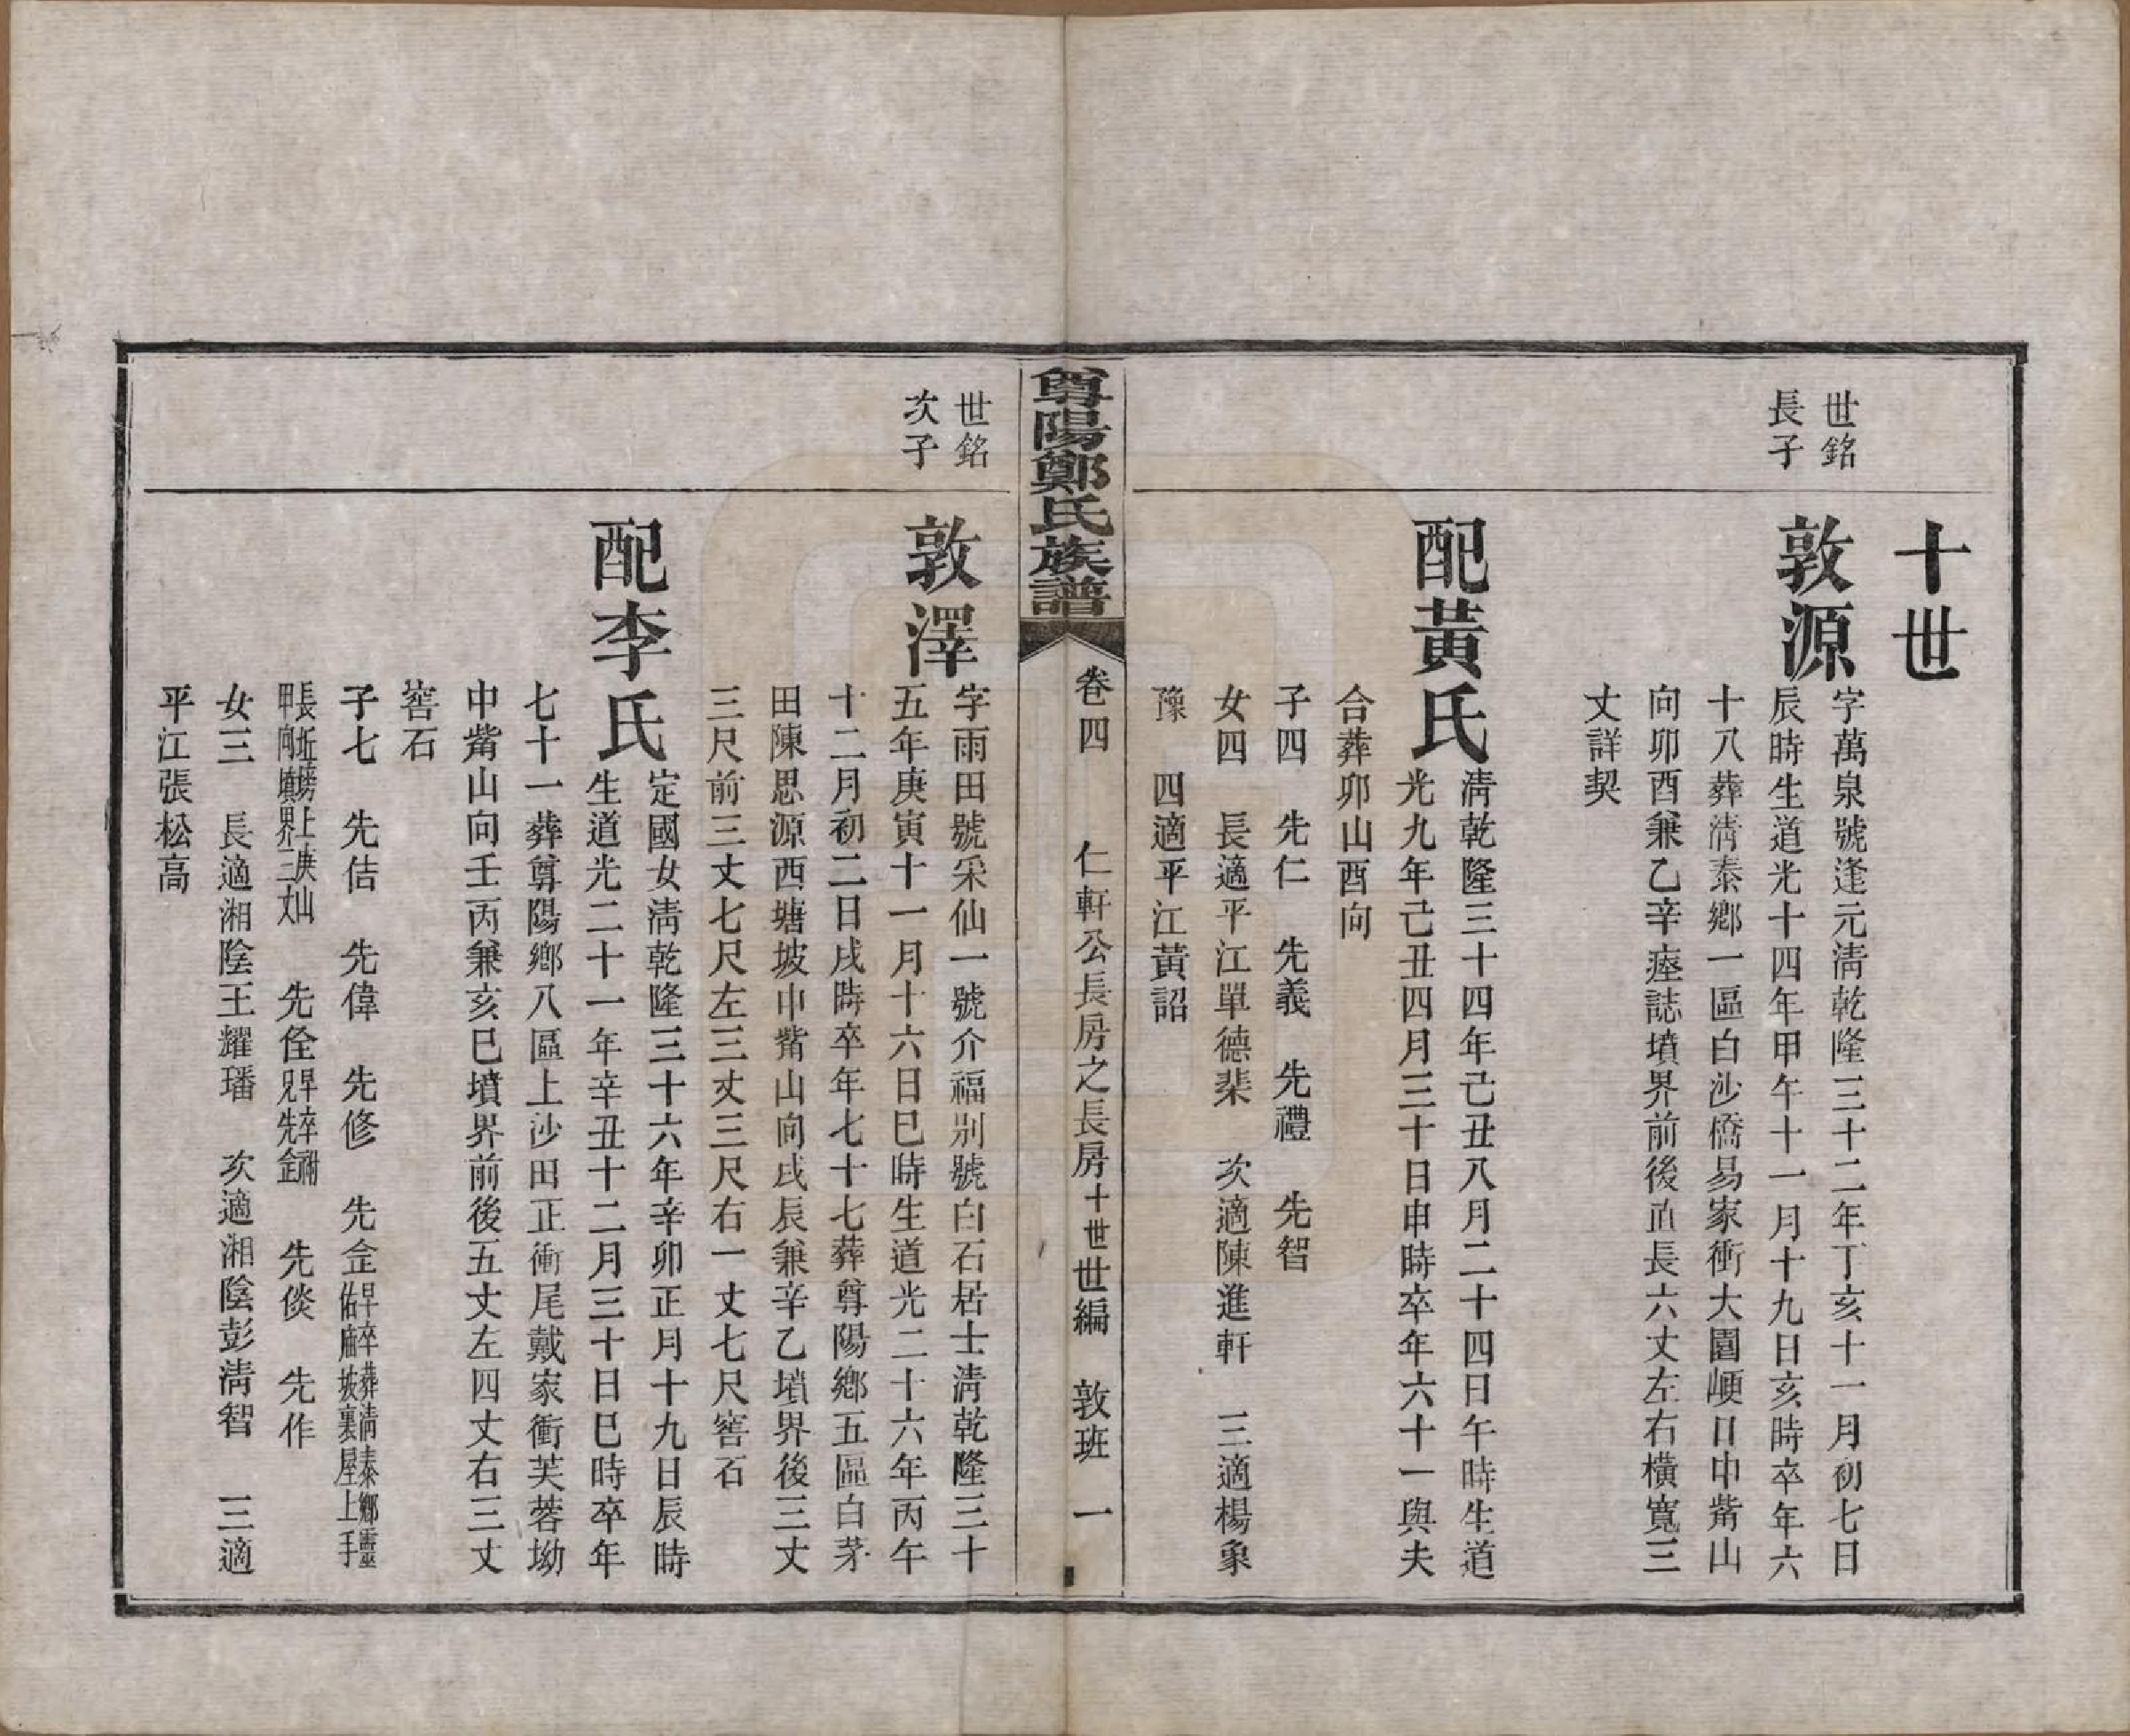 十世
世銘
長子
敦源
字萬泉號逢元清乾隆三十二年丁亥十一月初七日
辰時生道光十四年甲午十一月十九日亥時卒年六
十八葬清泰鄉一區白沙橋易家衝大園㟍日中觜山
向卯酉兼乙辛瘞誌墳界前後直長六丈左右橫寬三
丈詳契
配黃氏
清乾隆三十四年己丑八月二十四日午時生道
光九年己丑四月三十日申時卒年六十一與夫
合葬卯山酉向
子四 先仁 先義 先禮 先智
女四 長適平江單德棐 次適陳進軒 三適楊象
豫 四適平江黃詔
尊陽鄭氏族譜
卷四 仁軒公長房之長房十世世編 敦班 一
世銘
次子
敦澤
字雨田號采仙一號介福別號白石居士清乾隆三十
五年庚寅十一月十六日巳時生道光二十六年丙午
十二月初二日戌時卒年七十七葬尊陽鄉五區白茅
田陳思源西塘坡中觜山向戌辰兼辛乙墳界後三丈
三尺前三丈七尺左三丈三尺右一丈七尺窖石
配李氏
定國女清乾隆三十六年辛卯正月十九日辰時
生道光二十一年辛丑十二月三十日巳時卒年
七十一葬尊陽鄉八區上沙田正衝尾戴家衝芙蓉坳
中觜山向壬丙兼亥巳墳界前後五丈左四丈右三丈
窖石
子七 先佶 先偉 先修 先企早卒葬清泰鄉靈佑廟坡裏屋上手
長坵塝上庚山甲向墳界三丈 先佺早卒祔兄先企 先倓 先作
女三 長適湘陰王耀璠 次適湘陰彭清智 三適
平江張松高